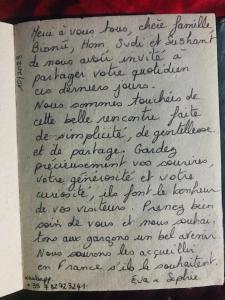 10/2023
Merci à vous tous, chère famille
Bisnu, Hom, Sudi et Sushant
de nous avoir invité à
partager votre quotidien
ces derniers jours.
Nous sommes touchées de
cette belle rencontre faite
de simplicité, de gentillesse
et de partage. Gardez
précieusement vos sourires,
votre générosité et votre
curiosité, ils font le bonheur
de vos visiteurs. Prenez bien
soin de vous et nous souhai-
tons aux garçons un bel avenir
Nous saurons les accueillir
en France s'ils le souhaitent.
Eva & Sophie